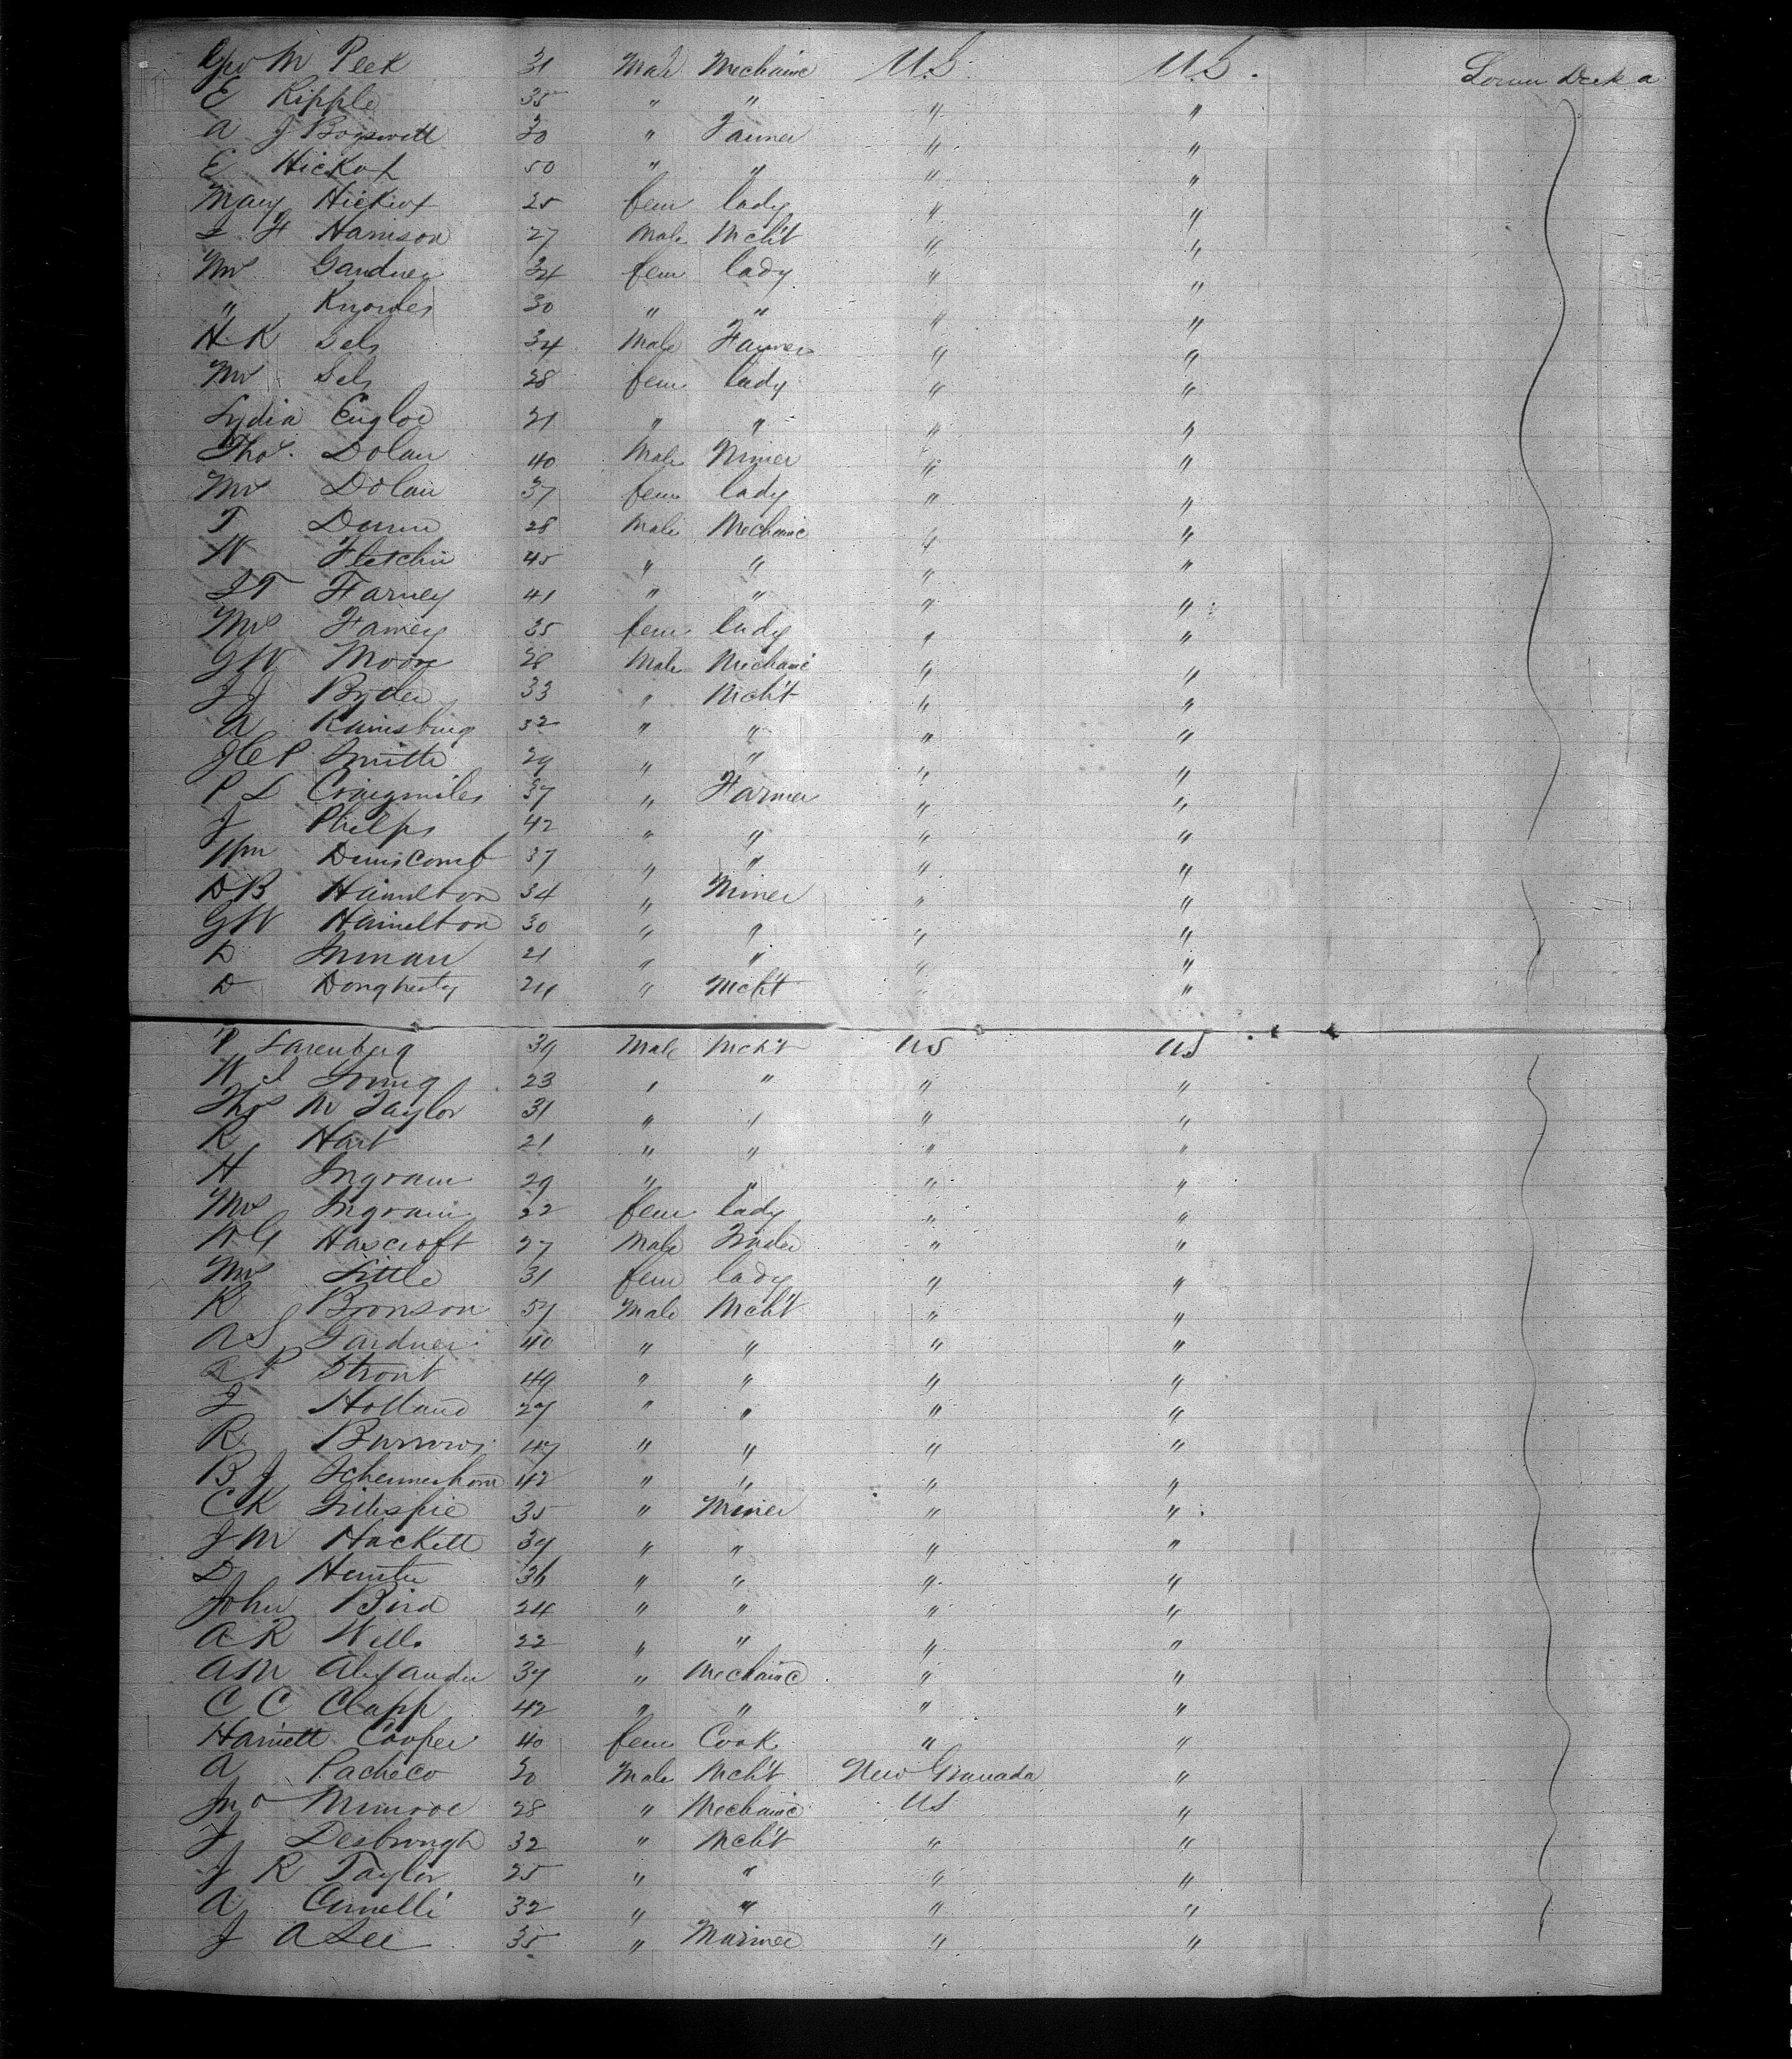 Geo M Peek 31 Male Mechanic U.S. U.S. Lower Deck a
E Ripple 35 " " " "
A J Bogswell 30 " Farmer " "
E Hickox 50 " " " "
Mary Hickox 25 fem lady " "
S H Harrison 27 Male Mcht " "
Mrs Gardner 34 fem lady " "
" Knowles 30 " " " "
H K Sels 34 Male Farmer " "
Mrs Sels 28 fem lady " "
Lydia 21 " " " "
Thos. Dolan 40 Male Miner " "
Mrs Dolan 37 fem lady " "
T Dunn 28 Male Mechanic " "
W Fletcher 45 " " " "
S T Farney 41 " " " "
Mrs Farney 35 fem lady " "
G W Moore 28 Male Mechanic " "
J J Ryder 33 " Mcht " "
A Rainsburg 32 " " " "
J C P Smith 29 " " " "
P L Craigmiles 37 " Farmer " "
J Phelps 42 " " " "
Wm Dunscomb 37 " " " "
D B Hamilton 34 " Miner " "
G W Hamilton 30 " " " "
D Inman 21 " " " "
D Dougherty 24 " Mcht " "
P Sarenberg 39 Male Mcht US US
W S 23 " " " "
Thos M Taylor 31 " " " "
R Hart 21 " " " "
H Ingram 29 " " " "
Mrs Ingram 22 fem lady " "
W G Hascroft 27 Male Trader " "
Mrs Little 31 fem lady " "
R Bronson 57 Male Mcht " "
A S Gardner 40 " " " "
A P Strout 49 " " " "
J Holland 27 " " " "
R Burrows 47 " " " "
B J Schermerhorn 42 " " " "
C K Gillespie 35 " Miner " "
J M Hackett 34 " " " "
D Hunter 36 " " " "
John Bird 24 " " " "
A R Wells 22 " " " "
A M Alexander 37 " Mechanic " "
C C Clapp 42 " " " "
Harriett Cooper 40 fem Cook " "
A Pacheco 30 Male Mcht New Granada "
Jno Munroe 28 " Mechanic US "
J Desbrough 32 " Mcht " "
J R Taylor 25 " " " "
A 32 " " " "
J A Lee 35 " Mariner " "